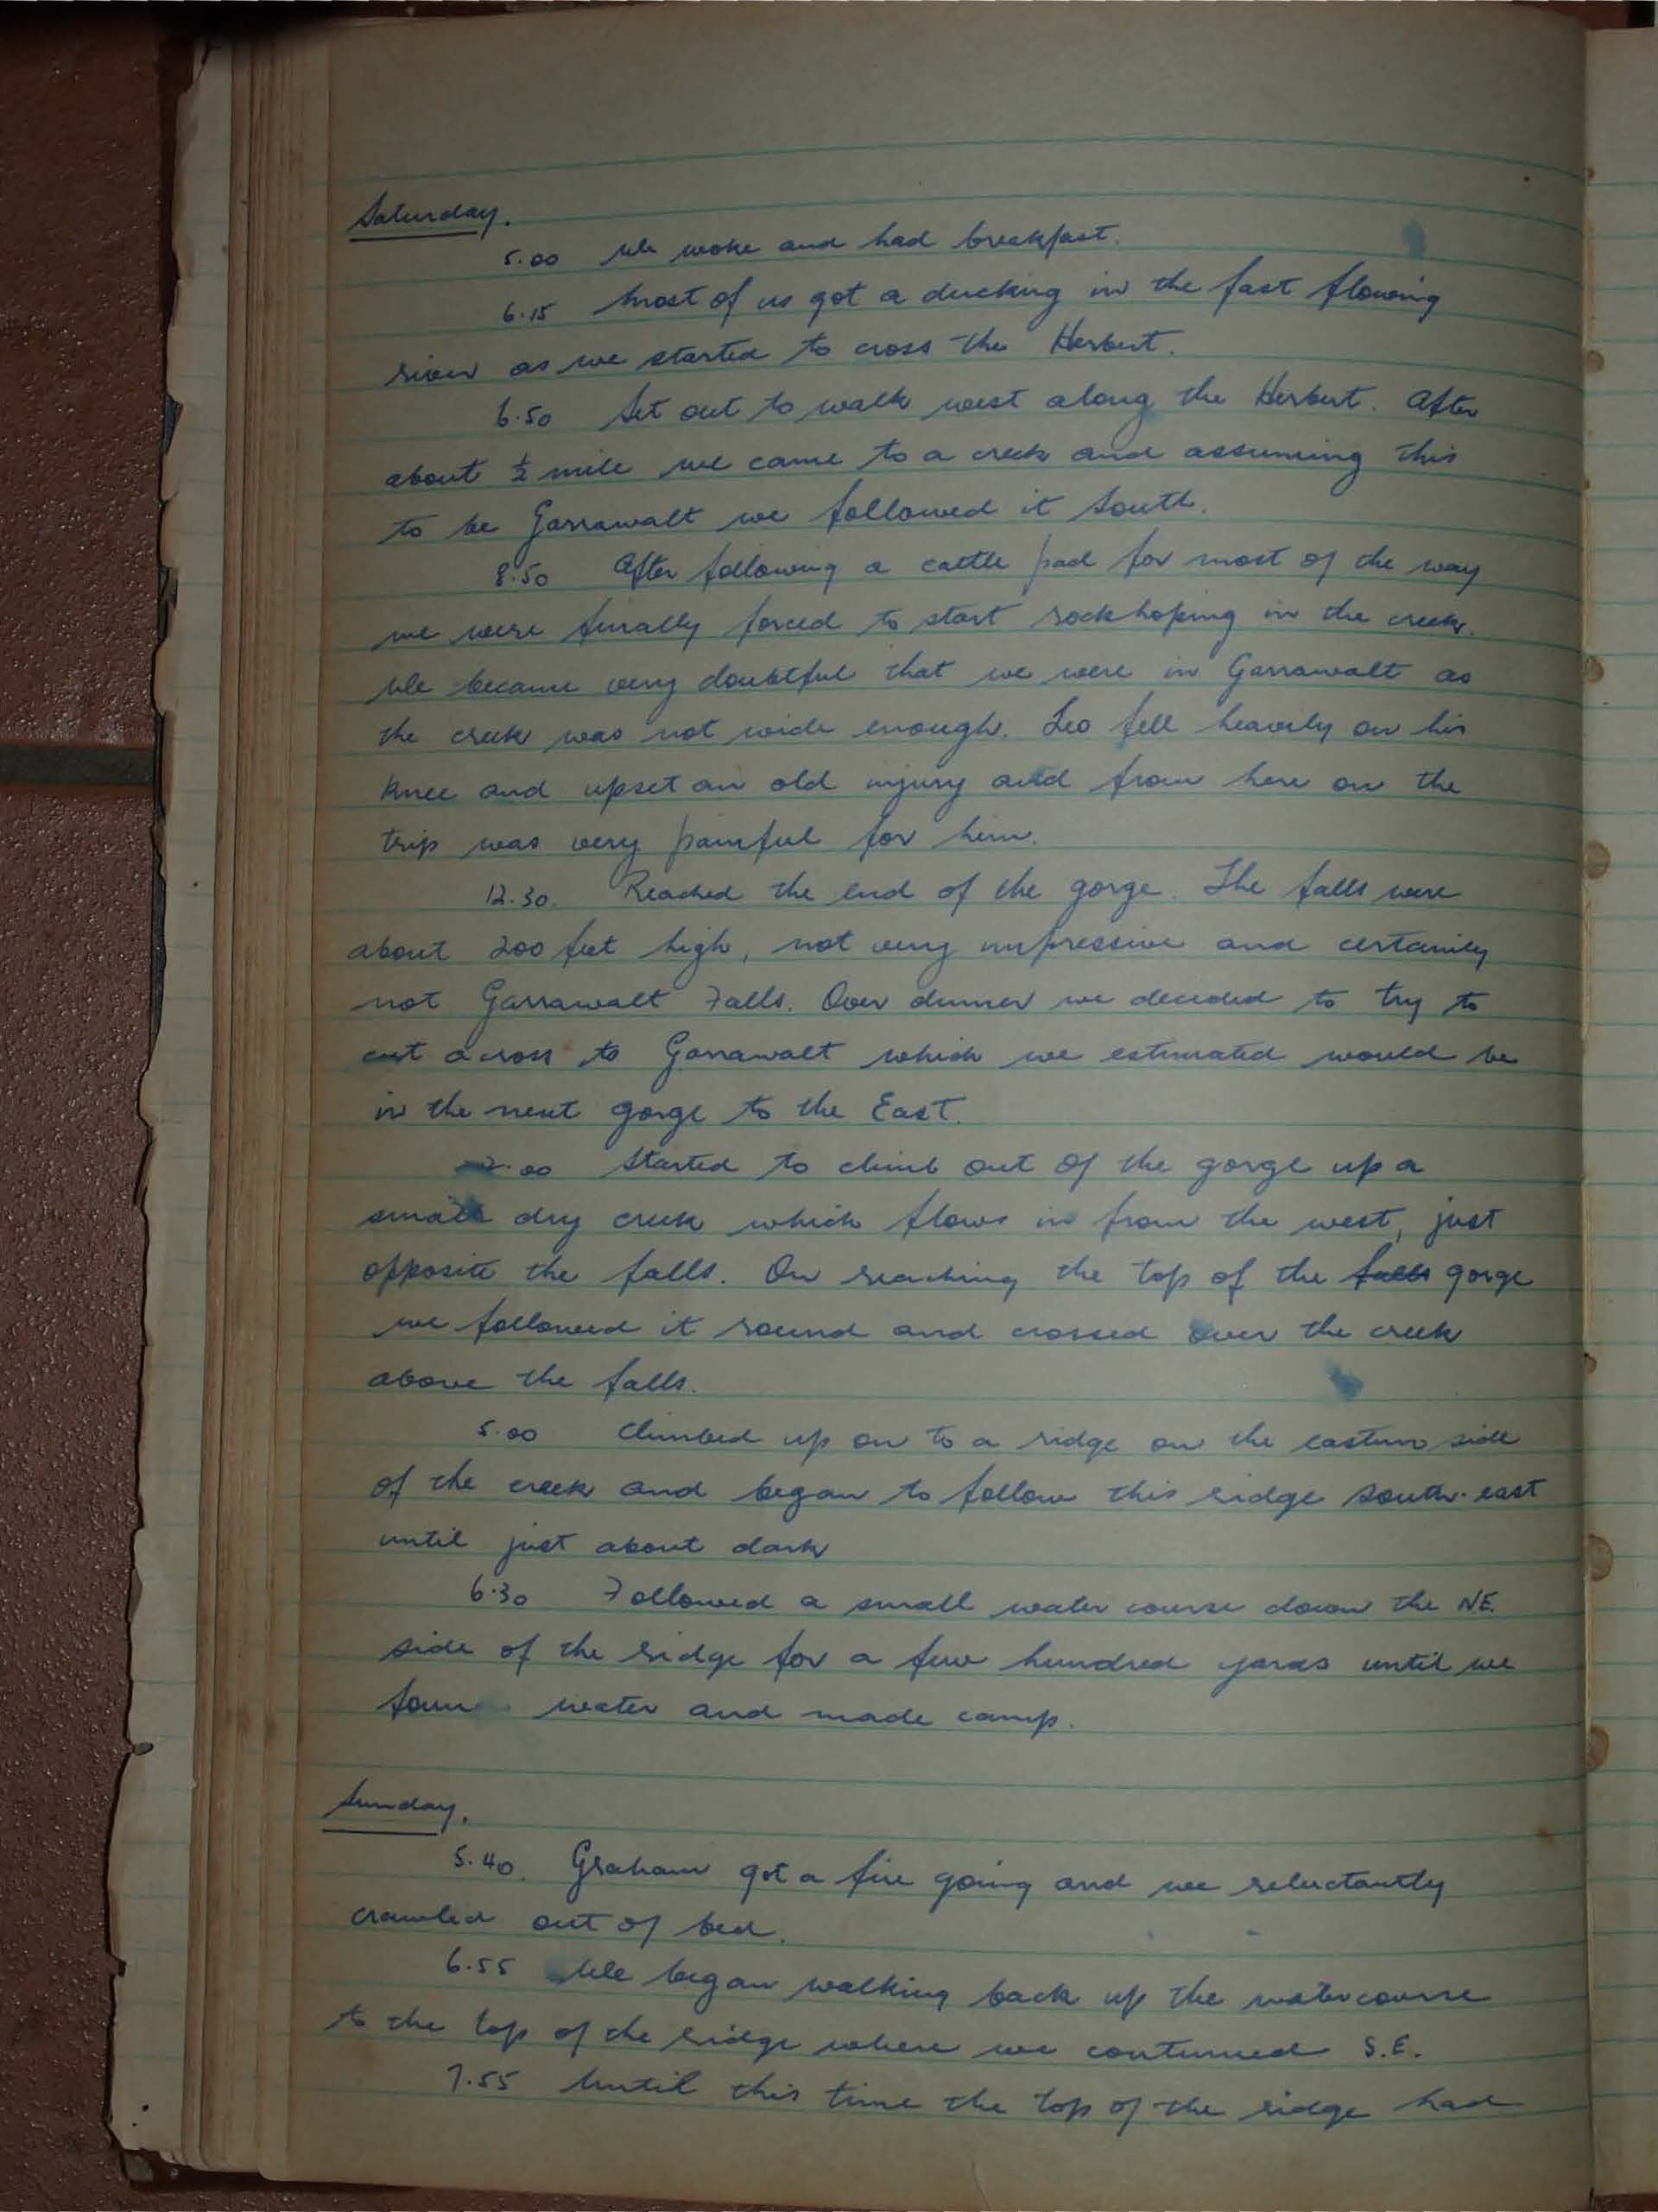 Saturday.
5.00 We woke and had breakfast.
6.15 Most of us got a ducking in the fast flowing
river as we started to cross the Herbert.
6.50 Set out to walk west along the Herbert. After
about ½ mile we came to a creek and assuming this
to be Garrawalt we followed it South.
8.50 After following a cattle pad for most of the way
we were finally forced to start rockhoping in the creek.
We became very doubtful that we were in Garrawalt as
the creek was not wide enough. Leo fell heavily on his
knee and upset an old injury and from here on the
trip was very painful for him.
12.30. Reached the end of the gorge. The falls were
about 200 feet high, not very impressive and certainly
not Garrawalt Falls. Over dinner we decided to try to
cut across to Garrawalt which we estimated would be
in the next gorge to the East.
2.00 Started to climb out of the gorge up a
small dry creek which flows in from the west, just
opposite the falls. On reaching the top of the falls gorge
we followed it round and crossed over the creek
above the falls.
5.00 Climbed up on to a ridge on the eastern side
of the creek and began to follow this ridge south-east
until just about dark
6.30 Followed a small water course down the N.E.
side of the ridge for a few hundred yards until we
found water and made camp.
Sunday.
5.40. Graham got a fire going and we reluctantly
crawled out of bed.
6.55 We began walking back up the watercourse
to the top of the ridge where we continued S.E.
7.55 Until this time the top of the ridge had